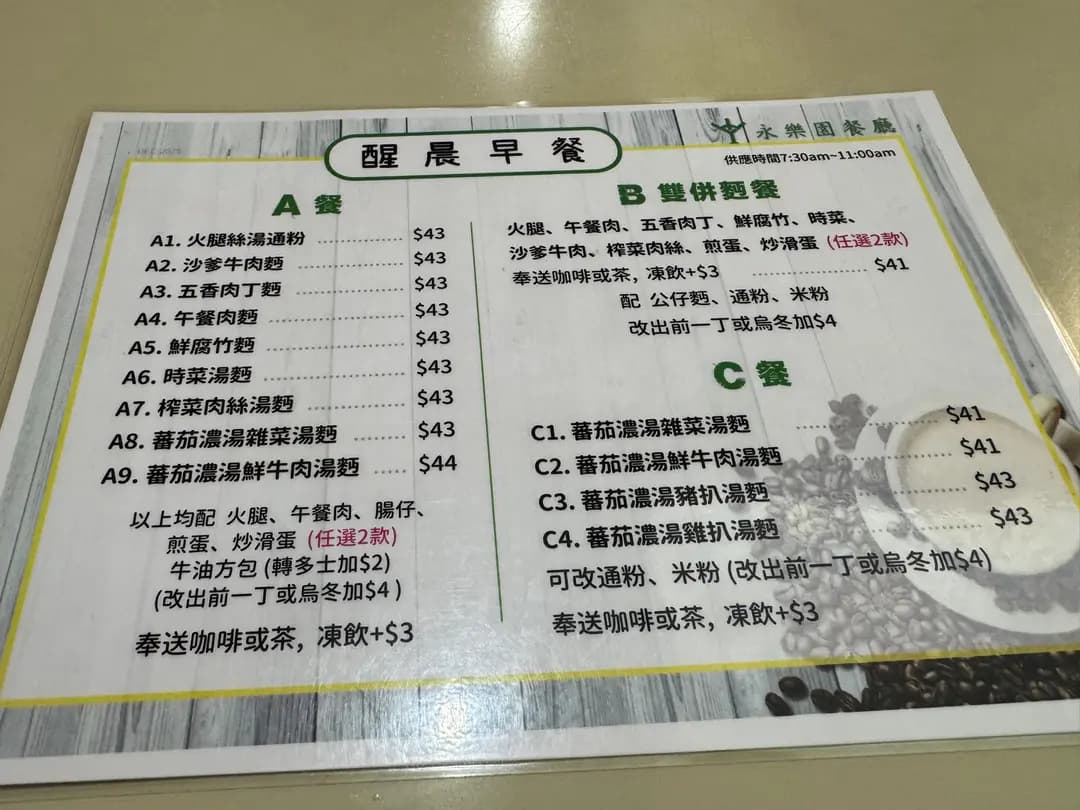 永樂園餐廳
醒晨早餐
供應時間7:30am~11:00am
A 餐
A1. 火腿絲湯通粉 ………… $43
A2. 沙爹牛肉麵 ………… $43
A3. 五香肉丁麵 ………… $43
A4. 午餐肉麵 ………… $43
A5. 鮮腐竹麵 ………… $43
A6. 時菜湯麵 ………… $43
A7. 榨菜肉絲湯麵 ………… $43
A8. 蕃茄濃湯雜菜湯麵 ……… $43
A9. 蕃茄濃湯鮮牛肉湯麵 …… $44
以上均配 火腿、午餐肉、腸仔、
煎蛋、炒滑蛋 (任選2款)
牛油方包 (轉多士加$2)
(改出前一丁或烏冬加$4 )
奉送咖啡或茶, 凍飲+$3
B 雙併麵餐
火腿、午餐肉、五香肉丁、鮮腐竹、時菜、
沙爹牛肉、榨菜肉絲、煎蛋、炒滑蛋 (任選2款)
奉送咖啡或茶, 凍飲+$3 ………… $41
配 公仔麵、通粉、米粉
改出前一丁或烏冬加$4
C 餐
C1. 蕃茄濃湯雜菜湯麵 ………… $41
C2. 蕃茄濃湯鮮牛肉湯麵 ………… $41
C3. 蕃茄濃湯豬扒湯麵 ………… $43
C4. 蕃茄濃湯雞扒湯麵 ………… $43
可改通粉、米粉 (改出前一丁或烏冬加$4)
奉送咖啡或茶, 凍飲+$3